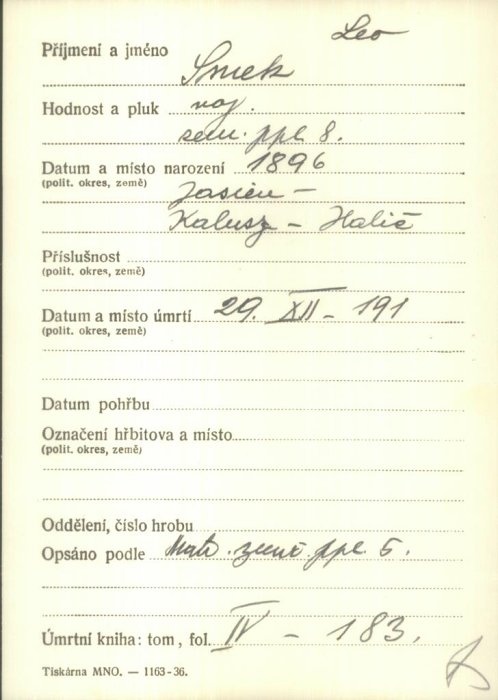 Leo
Příjmení a jméno Smek
Hodnost a pluk voj.
zem. ppl 8.
Datum a místo narození 1896
(polit. okres, země) Jasien –
Kalusz – Halič
Příslušnost
(polit. okres, země)
Datum a místo úmrtí 29. XII – 191
(polit. okres, země)
Datum pohřbu
Označení hřbitova a místo
(polit. okres, země)
Oddělení, číslo hrobu
Opsáno podle Matr. zemř. ppl. 5.
Úmrtní kniha: tom, fol. IV – 183.
Tiskárna MNO. — 1163-36.